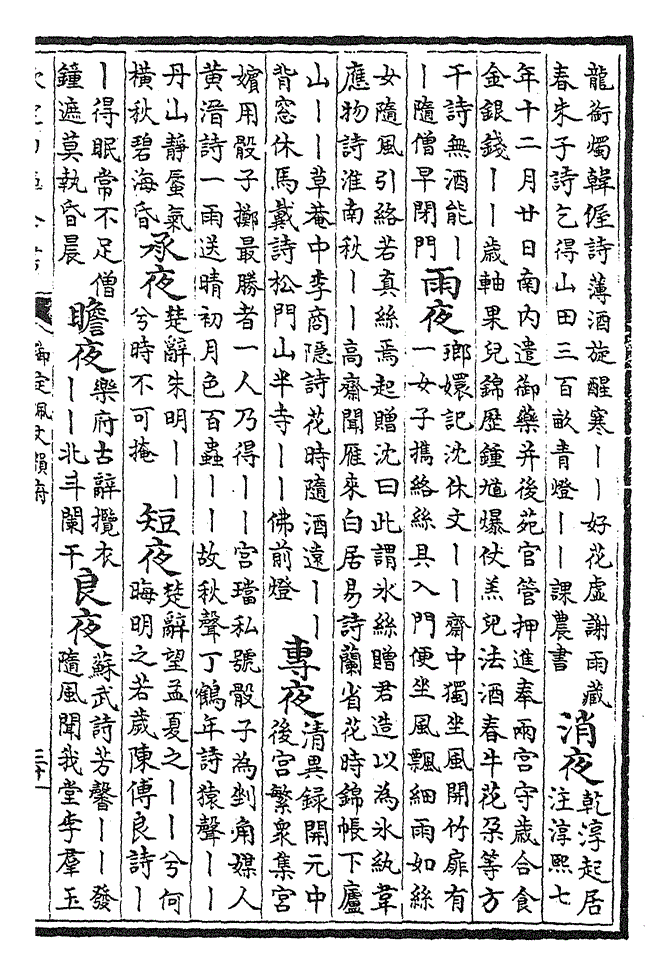 龍銜燭韓偓詩薄酒旋醒寒丨丨好花虛謝雨藏
春朱子詩乞得山田三百畝青燈丨丨課農書
消夜
乾淳起居
注淳熙七
年十二月廿日南內遣御藥幷後苑官管押進奉兩宮守歲合食
金銀錢丨丨歲軸果兒錦歷鍾馗爆仗羔兒法酒春牛花朶等方
干詩無酒能丨
丨隨僧早閉門
雨夜
瑯嬛記沈休文丨丨齋中獨坐風開竹扉有
一女子攜絡絲具入門便坐風飄細雨如絲
女隨風引絡若真絲焉起贈沈曰此謂氷絲贈君造以為氷紈韋
應物詩淮南秋丨丨高齋聞雁來白居易詩蘭省花時錦帳下廬
山丨丨草菴中李商隱詩花時隨酒遠丨丨
背窓休馬戴詩松門山半寺丨丨佛前燈
專夜
清異録開元中
後宮繁衆集宮
嬪用骰子擲最勝者一人乃得丨丨宮璫私號骰子為剉角媒人
黃溍詩一雨送晴初月色百蟲丨丨故秋聲丁鶴年詩猿聲丨丨
丹山靜蜃氣
橫秋碧海昏
承夜
楚辭朱明丨丨
兮時不可掩
短夜
楚辭望孟夏之丨丨兮何
晦明之若歲陳傅良詩丨
丨得眠常不足僧
鐘遮莫執昏晨
瞻夜
樂府古辭攬衣
丨丨北斗闌干
良夜
蘇武詩芳馨丨丨發
隨風聞我堂李羣玉
御定佩文韻府